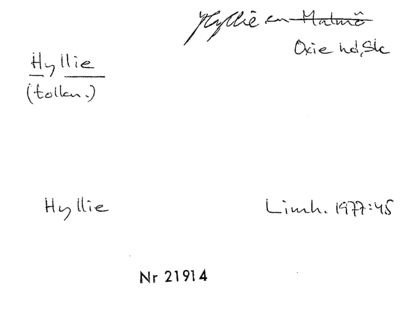 Hyllie sn Malmö
Oxie hd, Sk
Hyllie
(tolkn.)
Hyllie
Limh. 1977:45
Nr 21914